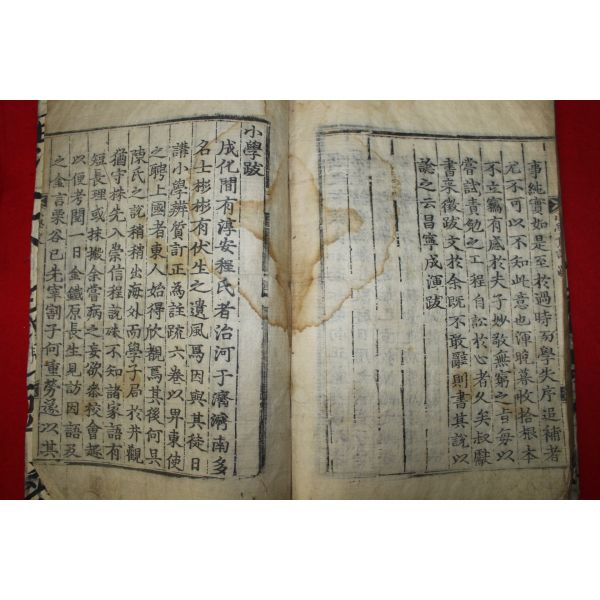 事純實如是至於過時勿學失序追補者
尤不可以不知此意也渾晩暮收拾根本
不立竊有感於夫子妙敬無窮之旨每以
嘗試責勉之工程自訟於心者久矣叔獻
書來徵跋文於余旣不敢辭則書其說以
諗之云昌寧成渾跋
小學跋
成化間有淳安程氏者治河于濟濟南多
名士彬彬有伏生之遺風焉因與其徒日
講小學辨質訂正為註疏六卷以畀東使
之聘上國者東人始得欣覩焉其後何其
陳氏之說稍稍出海外而學子局於井觀
猶守株先入崇信程說殊不知諸家語有
短長理或抹摋余嘗病之妄欲叅校會趍
以便考閱一日金鐵原長生見訪因語及
之金言栗谷已先宰割子何重勞遂以其